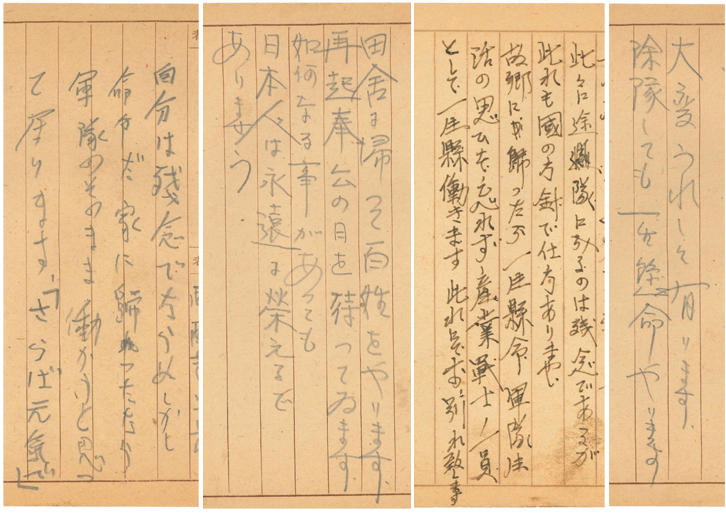 自分は残念でならぬしかし
命令だ家に帰ったなら
軍隊のそのまま働かうと思っ
て居ります、「さらば元気で」
田舎に帰って百姓をやります
再起奉公の日を待ってゐます
如何なる事があっても
日本人は永遠に榮えるで
ありませう
除隊になるのは残念であるが
此れも國の方針で仕方ありません
故郷に帰ったなら一生懸命軍隊生
活の思ひを忘れず産業戦士ノ一員
として一生懸働きます 此れでお別れ致します
大変うれしく有ります、
除隊しても一生懸命やります